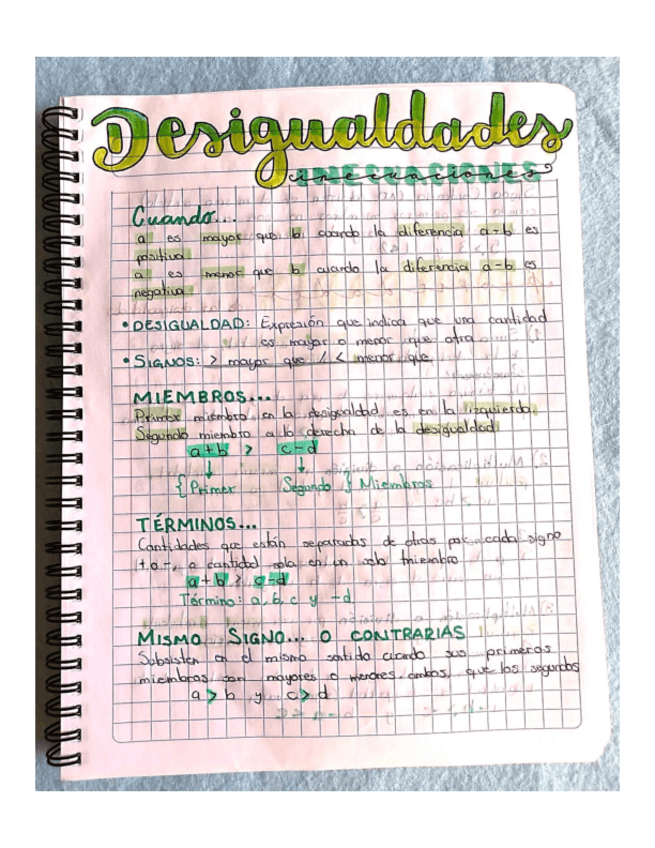 Desigualdades
inecuaciones
Cuando...
a es mayor que b cuando la diferencia a-b es
positiva
a es menor que b cuando la diferencia a-b es
negativa
• DESIGUALDAD: Expresión que indica que una cantidad
es mayor o menor que otra
• SIGNOS: > mayor que / < menor que
MIEMBROS...
Primer miembro en la desigualdad es en la izquierda.
Segundo miembro a la derecha de la desigualdad
a+b > c-d
↓ ↓
{ Primer Segundo } Miembros
TÉRMINOS...
Cantidades que están separadas de otras por cada signo
+ o -, o cantidad sola en un solo miembro
a+b > c-d
Término: a, b, c y -d
MISMO SIGNO... O CONTRARIAS
Subsisten en el mismo sentido cuando sus primeros
miembros son mayores o menores ambos, que los segundos
a > b y c > d